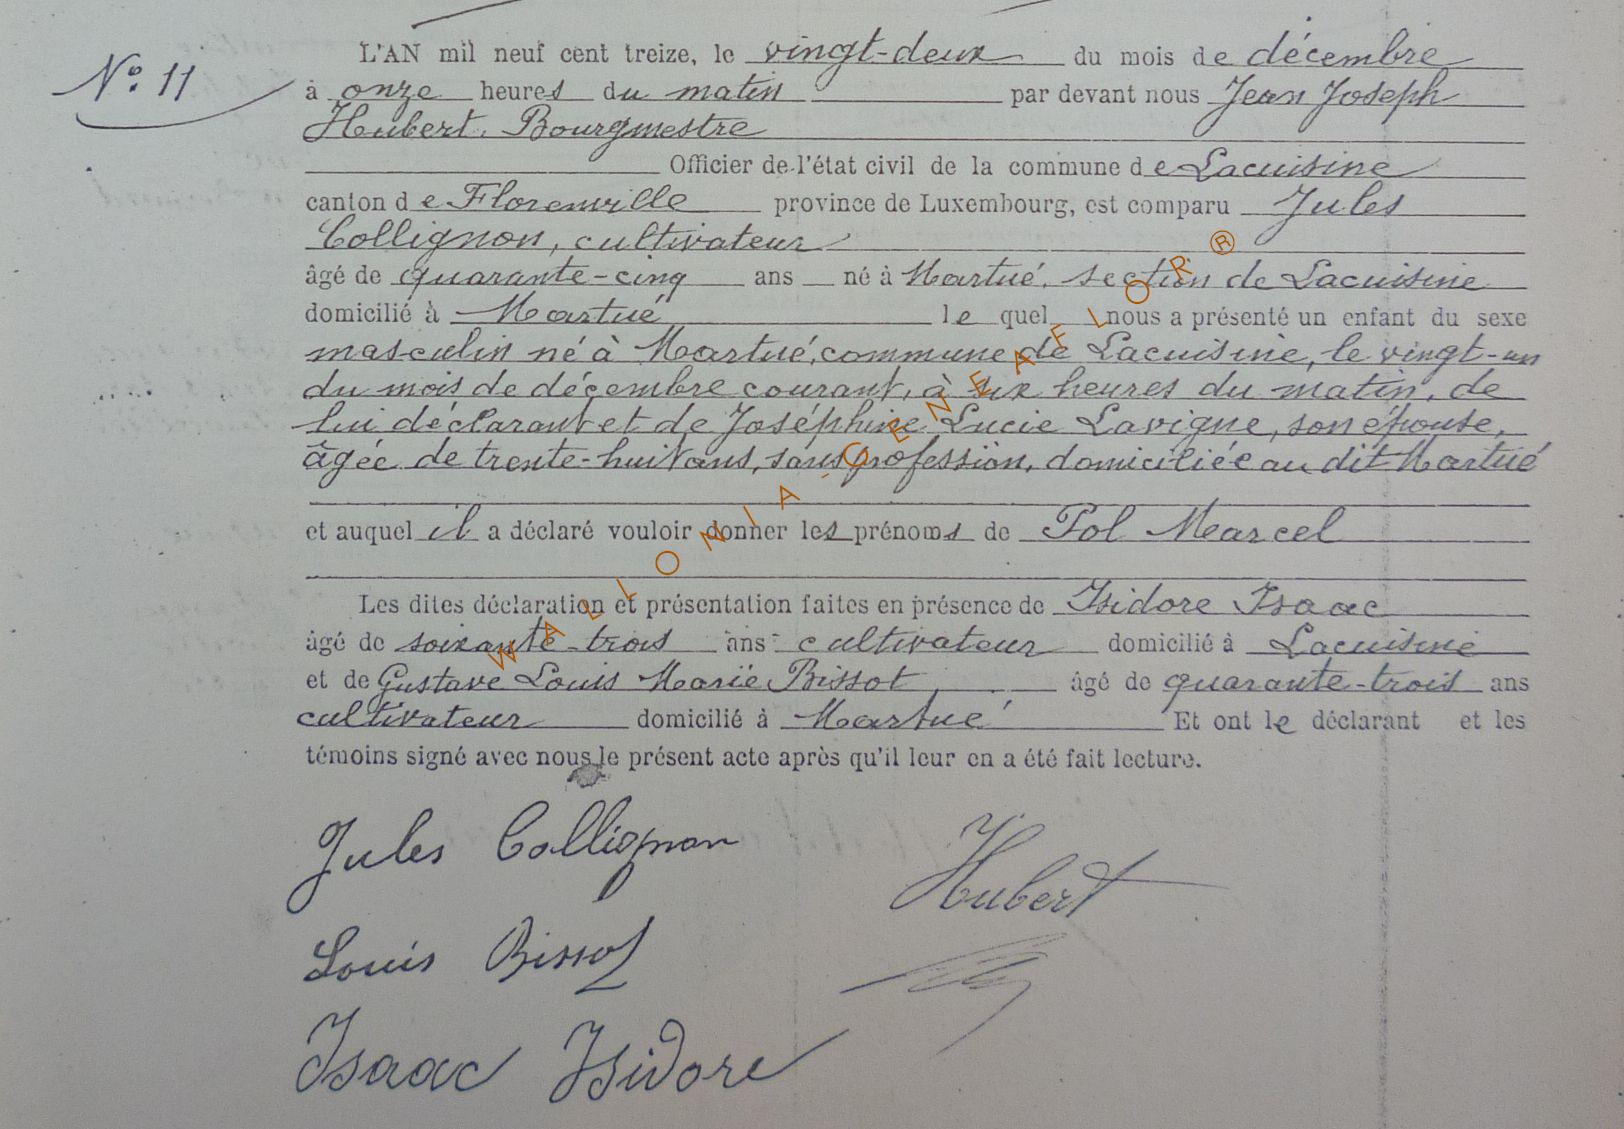 N° 11
L'AN mil neuf cent treize, le vingt-deux du mois de décembre
à onze heures du matin par devant nous Jean Joseph
Hubert, Bourgmestre
Officier de l'état civil de la commune de Lacuisine
canton de Florenville province de Luxembourg, est comparu Jules
Collignon, cultivateur
âgé de quarante-cinq ans né à Martué, section de Lacuisine
domicilié à Martué lequel nous a présenté un enfant du sexe
masculin né à Martué, commune de Lacuisine, le vingt-un
du mois de décembre courant, à six heures du matin, de
lui déclarant et de Joséphine Lucie Lavigne, son épouse,
âgée de trente-huit ans, sans profession, domiciliée au dit Martué
et auquel il a déclaré vouloir donner les prénoms de Pol Marcel
Les dites déclaration et présentation faites en présence de Isidore Isaac
âgé de soixante-trois ans cultivateur domicilié à Lacuisine
et de Gustave Louis Marie Bissot âgé de quarante-trois ans
cultivateur domicilié à Martué Et ont le déclarant et les
témoins signé avec nous le présent acte après qu'il leur en a été fait lecture.
Jules Collignon
Hubert
Louis Bissot
Isaac Isidore
WALLONIA-GENEAFLOR®